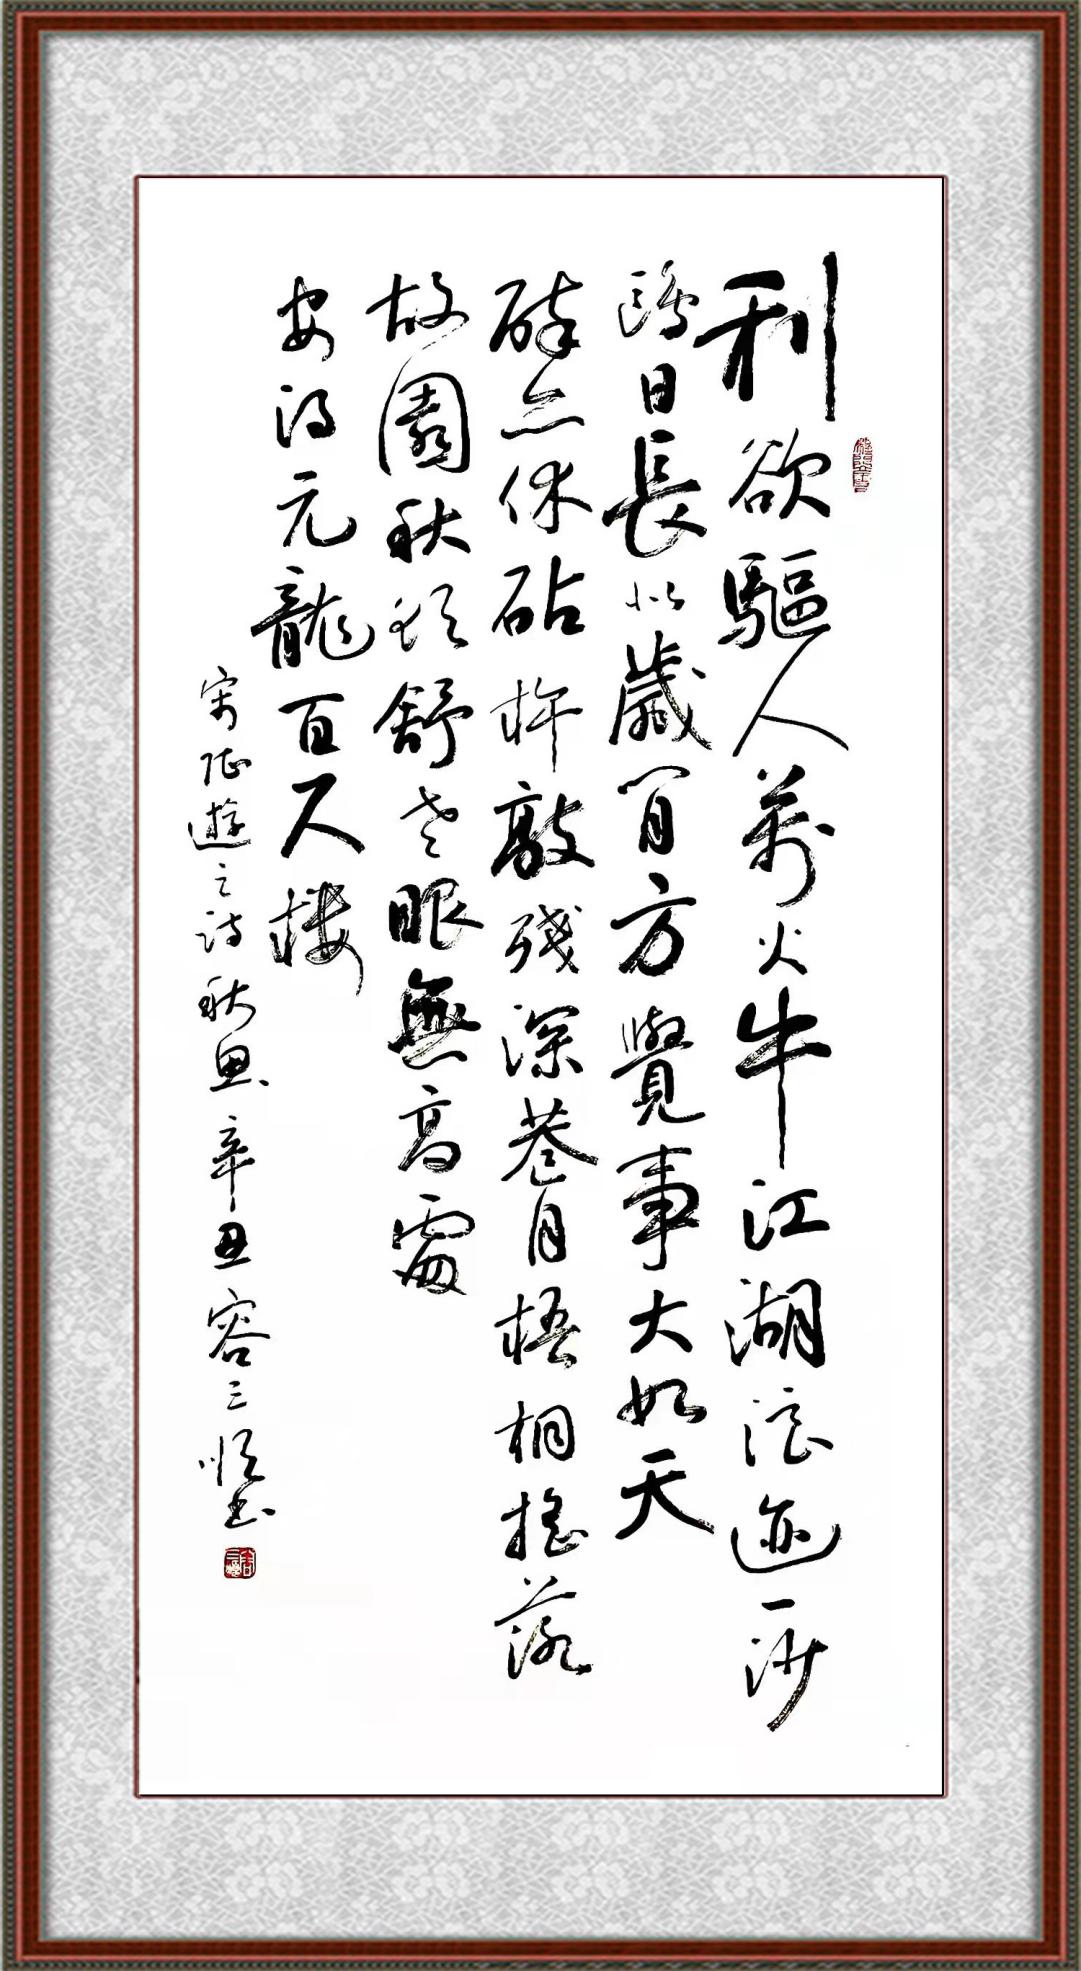 利欲驅人萬火牛江湖浪迹一沙
鷗日長似歲閒方覺事大如天
醉亦休砧杵敲殘深巷月梧桐搖落
故園秋欲舒老眼無高處
安得元龍百尺樓
宋陸遊之诗秋思辛丑容三順书